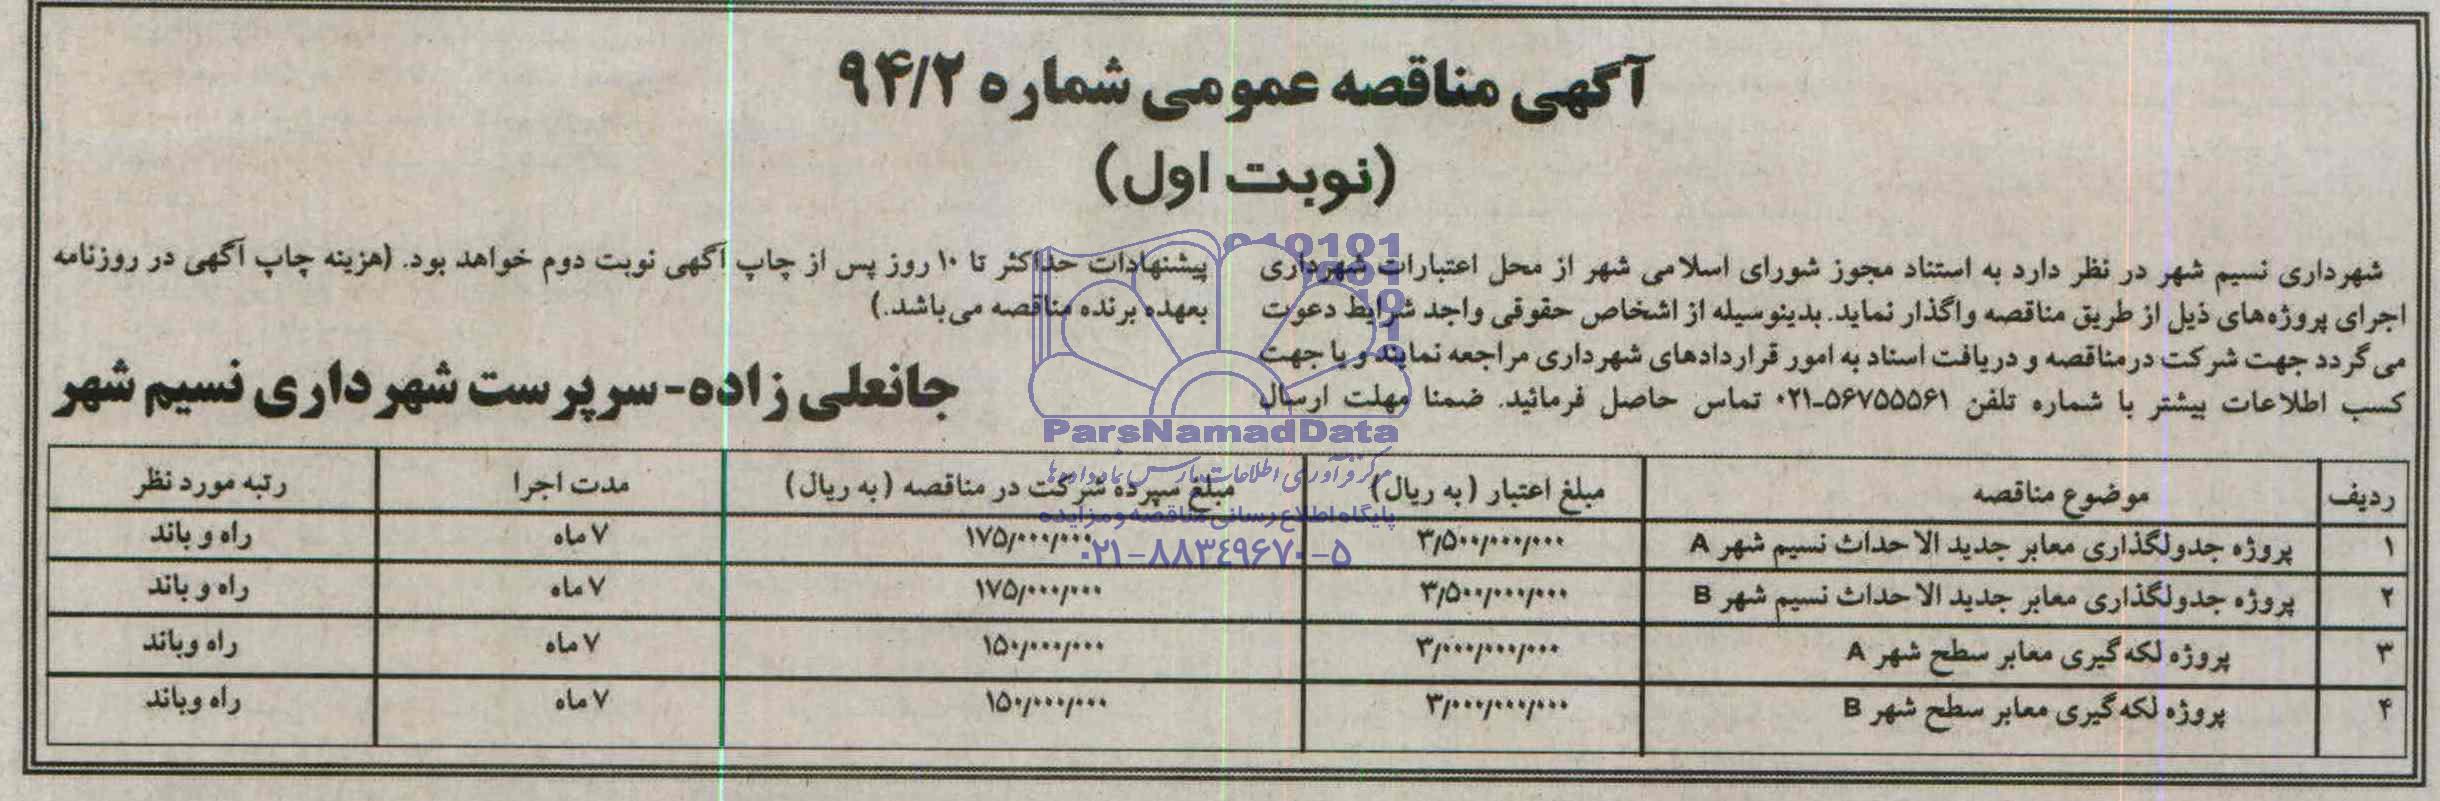 آگهی مناقصه عمومی شماره ۹۴/۲
(نوبت اول)
شهرداری نسیم شهر در نظر دارد به استناد مجوز شورای اسلامی شهر از محل اعتبارات شهرداری
اجرای پروژه‌های ذیل از طریق مناقصه واگذار نماید. بدینوسیله از اشخاص حقوقی واجد شرایط دعوت
می‌گردد جهت شرکت در مناقصه و دریافت اسناد به امور قراردادهای شهرداری مراجعه نمایند و یا جهت
کسب اطلاعات بیشتر با شماره تلفن ۵۶۷۵۵۵۶۱-۰۲۱ تماس حاصل فرمائید. ضمنا مهلت ارسال
پیشنهادات حداکثر تا ۱۰ روز پس از چاپ آگهی نوبت دوم خواهد بود. (هزینه چاپ آگهی در روزنامه
بعهده برنده مناقصه می‌باشد.)
جانعلی زاده-سرپرست شهرداری نسیم شهر
ردیف موضوع مناقصه مبلغ اعتبار (به ریال) مبلغ سپرده شرکت در مناقصه (به ریال) مدت اجرا رتبه مورد نظر
۱ پروژه جدولگذاری معابر جدید الاحداث نسیم شهر A ۳/۵۰۰/۰۰۰/۰۰۰ ۱۷۵/۰۰۰/۰۰۰ ۷ ماه راه و باند
۲ پروژه جدولگذاری معابر جدید الاحداث نسیم شهر B ۳/۵۰۰/۰۰۰/۰۰۰ ۱۷۵/۰۰۰/۰۰۰ ۷ ماه راه و باند
۳ پروژه لکه‌گیری معابر سطح شهر A ۳/۰۰۰/۰۰۰/۰۰۰ ۱۵۰/۰۰۰/۰۰۰ ۷ ماه راه وباند
۴ پروژه لکه‌گیری معابر سطح شهر B ۳/۰۰۰/۰۰۰/۰۰۰ ۱۵۰/۰۰۰/۰۰۰ ۷ ماه راه وباند
ParsNamadData
مرکز فرآوری اطلاعات پارس نماد داده‌ها
پایگاه اطلاع رسانی مناقصه و مزایده
۰۲۱-۸۸۳۴۹۶۷۰-۵